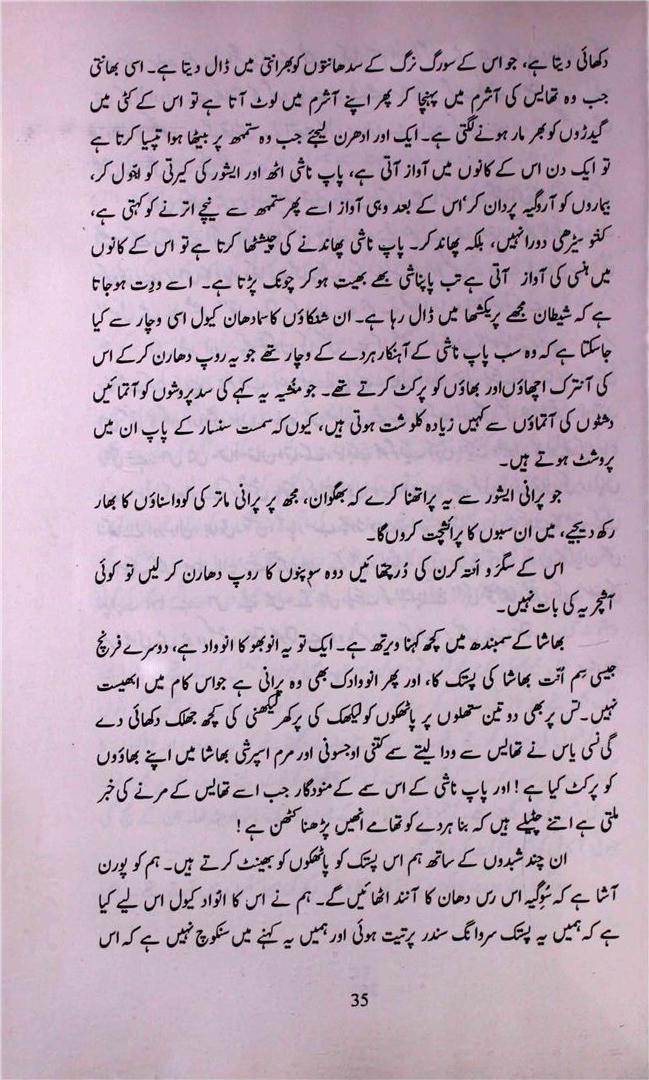 دکھائی دیتا ہے، جو اس کے سورگ نرگ کے سدھانتوں کو بھرانتی میں ڈال دیتا ہے۔ اسی بھانتی
جب وہ تھایس کی آشرم میں پہنچا کر پھر اپنے آشرم میں لوٹ آتا ہے تو اس کے کٹی میں
گیدڑوں کو بھر مار ہونے لگتی ہے۔ ایک اور ادھرن لیجئے جب وہ ستمبھ پر بیٹھا ہوا تپسیا کرتا ہے
تو ایک دن اس کے کانوں میں آواز آتی ہے، پاپ ناشی اٹھ اور ایشور کی کیرتی کو اجّول کر،
بیماروں کو آروگیہ پردان کر‘ اس کے بعد وہی آواز اسے پھر ستمبھ سے نیچے اترنے کو کہتی ہے،
کنتو سیڑھی دورا نہیں، بلکہ پھاند کر۔ پاپ ناشی پھاندنے کی چیشٹھا کرتا ہے تو اس کے کانوں
میں ہنسی کی آواز آتی ہے تب پاپناشی بھے بھیت ہو کر چونک پڑتا ہے۔ اسے ودِت ہو جاتا
ہے کہ شیطان مجھے پریکشھا میں ڈال رہا ہے۔ ان شنکاؤں کا سمادھان کیول اسی وچار سے کیا
جا سکتا ہے کہ وہ سب پاپ ناشی کے آہنکار ہردے کے وچار تھے جو یہ روپ دھارن کر کے اس
کی آنترک اچھاؤں اور بھاؤں کو پرکٹ کرتے تھے۔ جو منُشیہ یہ کہے کی سد پروشوں کو آتمائیں
دشٹوں کی آتماؤں سے کہیں زیادہ کلوشت ہوتی ہیں، کیوں کہ سمست سنسار کے پاپ ان میں
پروشٹ ہوتے ہیں۔
جو پرانی ایشور سے یہ پراتھنا کرے کہ بھگوان، مجھ پر پرانی ماتر کی کوواسناؤں کا بھار
رکھ دیجیے، میں ان سبوں کا پرائشچت کروں گا۔
اس کے سگرَو اَنتہ کرن کی دُرچھائیں دوہ سوپنوں کا روپ دھارن کر لیں تو کوئی
آشچریہ کی بات نہیں۔
بھاشا کے سمبندھ میں کچھ کہنا ویرتھ ہے۔ ایک تو یہ انوبھو کا انوواد ہے، دوسرے فرنچ
جیسی سِم انّت بھاشا کی پستک کا، اور پھر انووادک بھی وہ پرانی ہے جو اس کام میں ابھیست
نہیں۔ تس پر بھی دو تین ستھلوں پر پاٹھکوں کو لیکھک کی پرکھر لیکھنی کی کچھ جھلک دکھائی دے
گی نسی یاس نے تھایس سے ودا لیتے سے کتنی اوجسونی اور مرم اسپرشی بھاشا میں اپنے بھاوؤں
کو پرکٹ کیا ہے! اور پاپ ناشی کے اس سے کے منودگار جب اسے تھایس کے مرنے کی خبر
ملتی ہے اتنے چٹیلے ہیں کہ بنا ہردے کو تھامے انھیں پڑھنا کٹھن ہے!
ان چند شبدوں کے ساتھ ہم اس پستک کو پاٹھکوں کو بھینٹ کرتے ہیں۔ ہم کو پورن
آشا ہے کہ سُوگیہ اس رس دھان کا آنند اٹھائیں گے۔ ہم نے اس کا انوُاد کیول اس لیے کیا
ہے کہ ہمیں یہ پستک سروانگ سندر پرتیت ہوئی اور ہمیں یہ کہنے میں سنکوچ نہیں ہے کہ اس
35